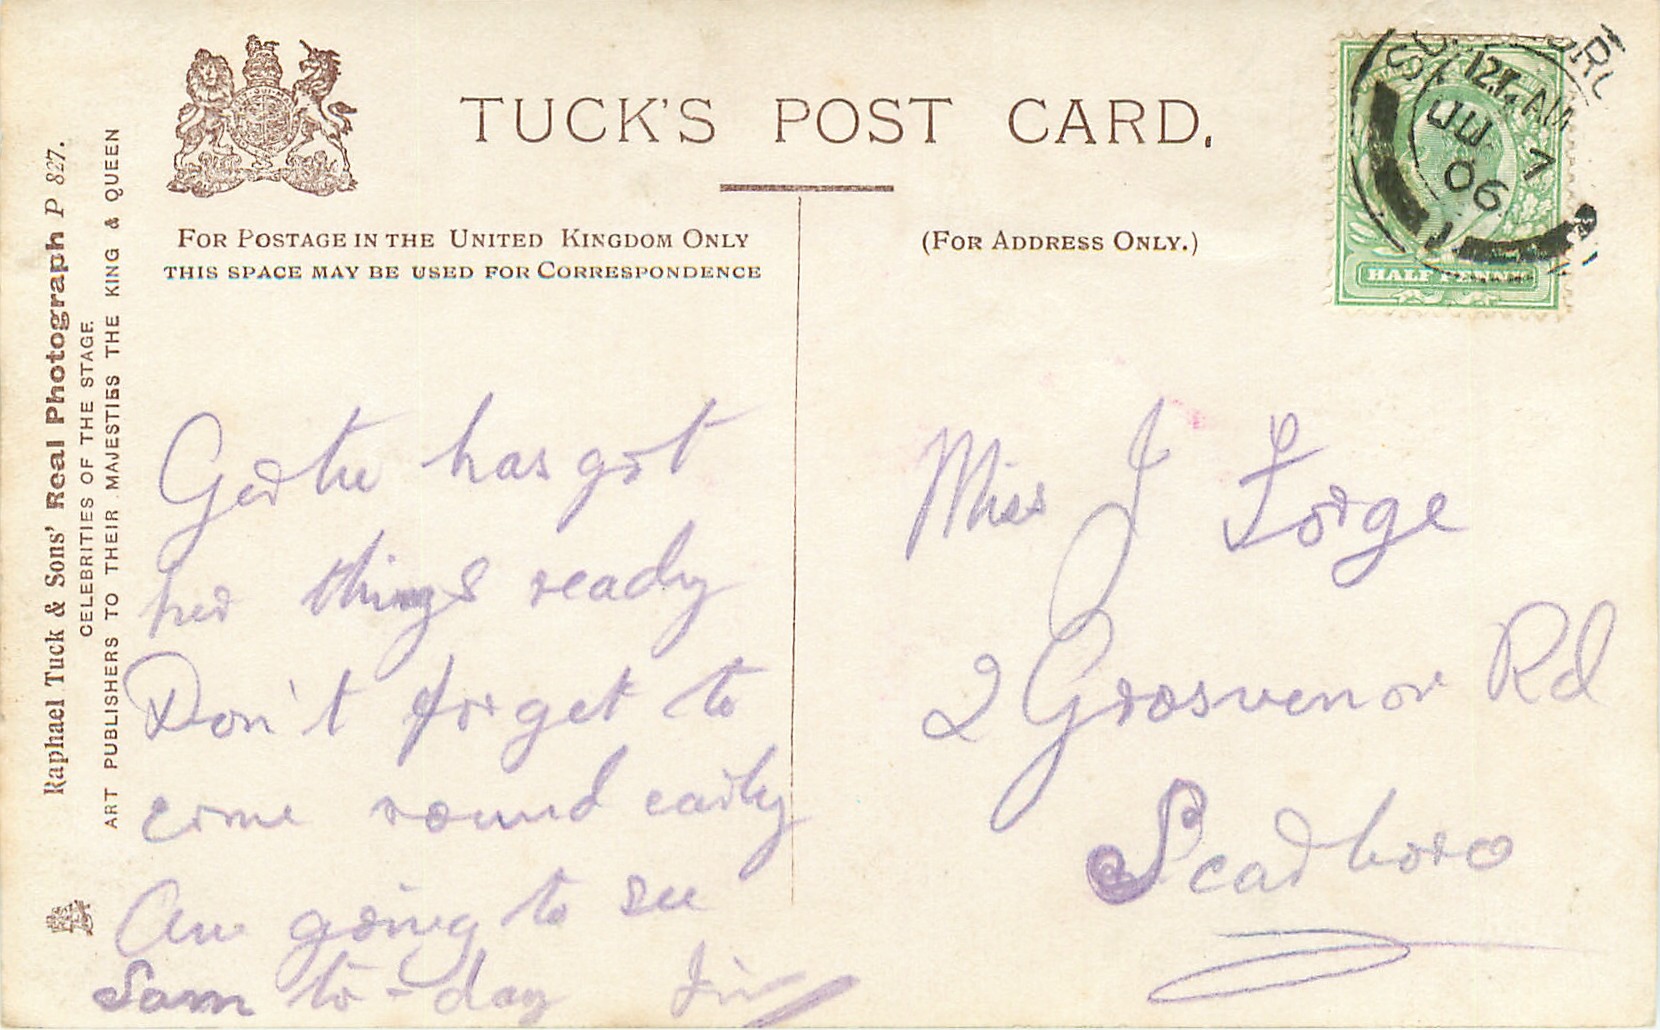 TUCK'S POST CARD.
FOR POSTAGE IN THE UNITED KINGDOM ONLY
THIS SPACE MAY BE USED FOR CORRESPONDENCE
(FOR ADDRESS ONLY.)
Raphael Tuck & Sons' Real Photograph P 827.
CELEBRITIES OF THE STAGE.
ART PUBLISHERS TO THEIR MAJESTIES THE KING & QUEEN
12 AM
JU 7
06
HALF PENNY
Gertie has got
her things ready
Don't forget to
come round early
Am going to see
Sam to-day
Miss J Forge
2 Grosvenor Rd
Scarboro